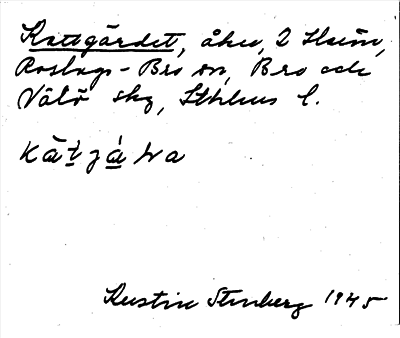 Kattgärdet, åker, 2 Hsēm,
Roslags-Bro sn, Bro och
Vätö skg, Sthlms l.
Kerstin Stenberg 1945